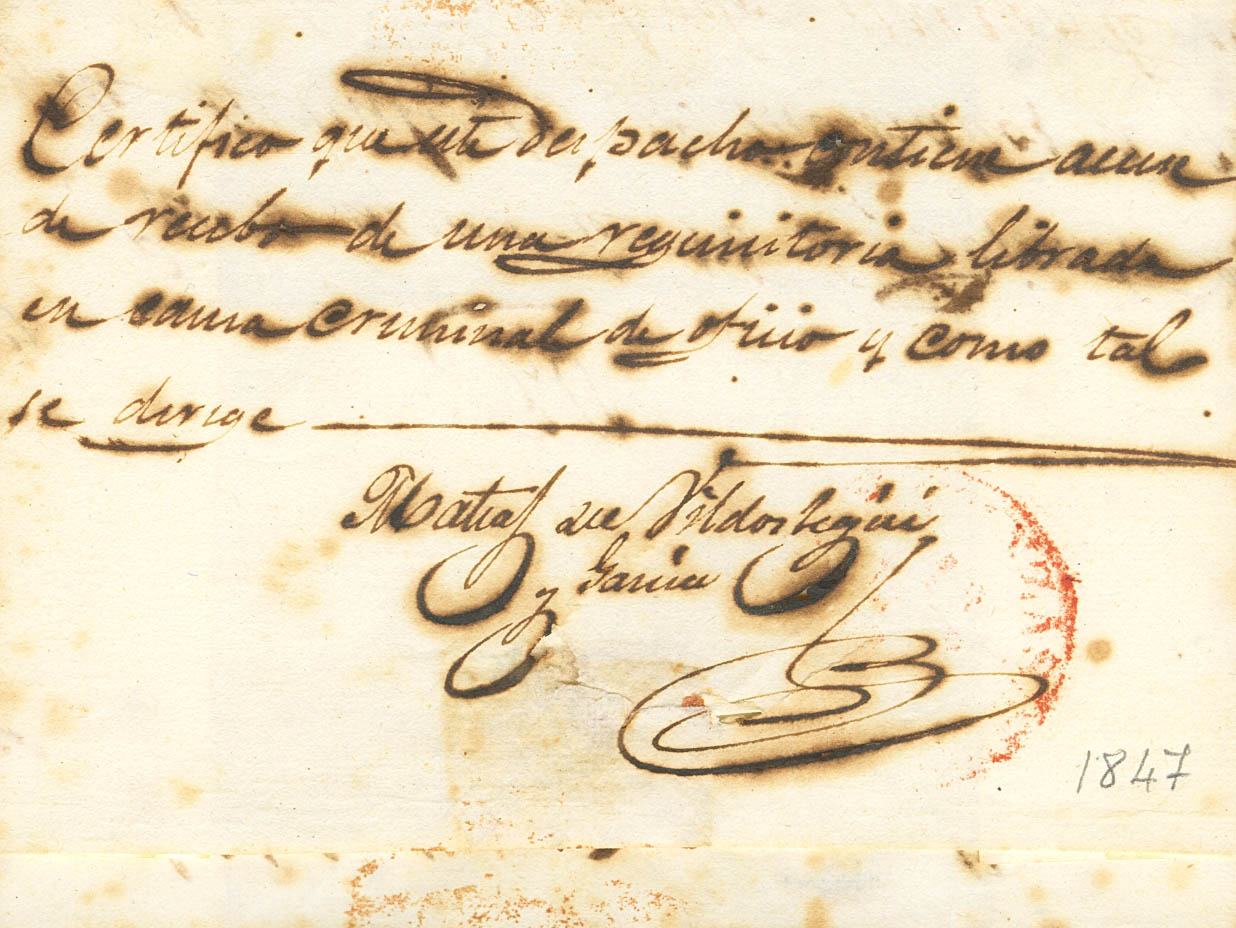 Certifico que este despacho contiene acuse
de recibo de una requisitoria librada
en causa criminal de oficio y como tal
se dirige
Matias de Vildosegui
y Garcia
1847